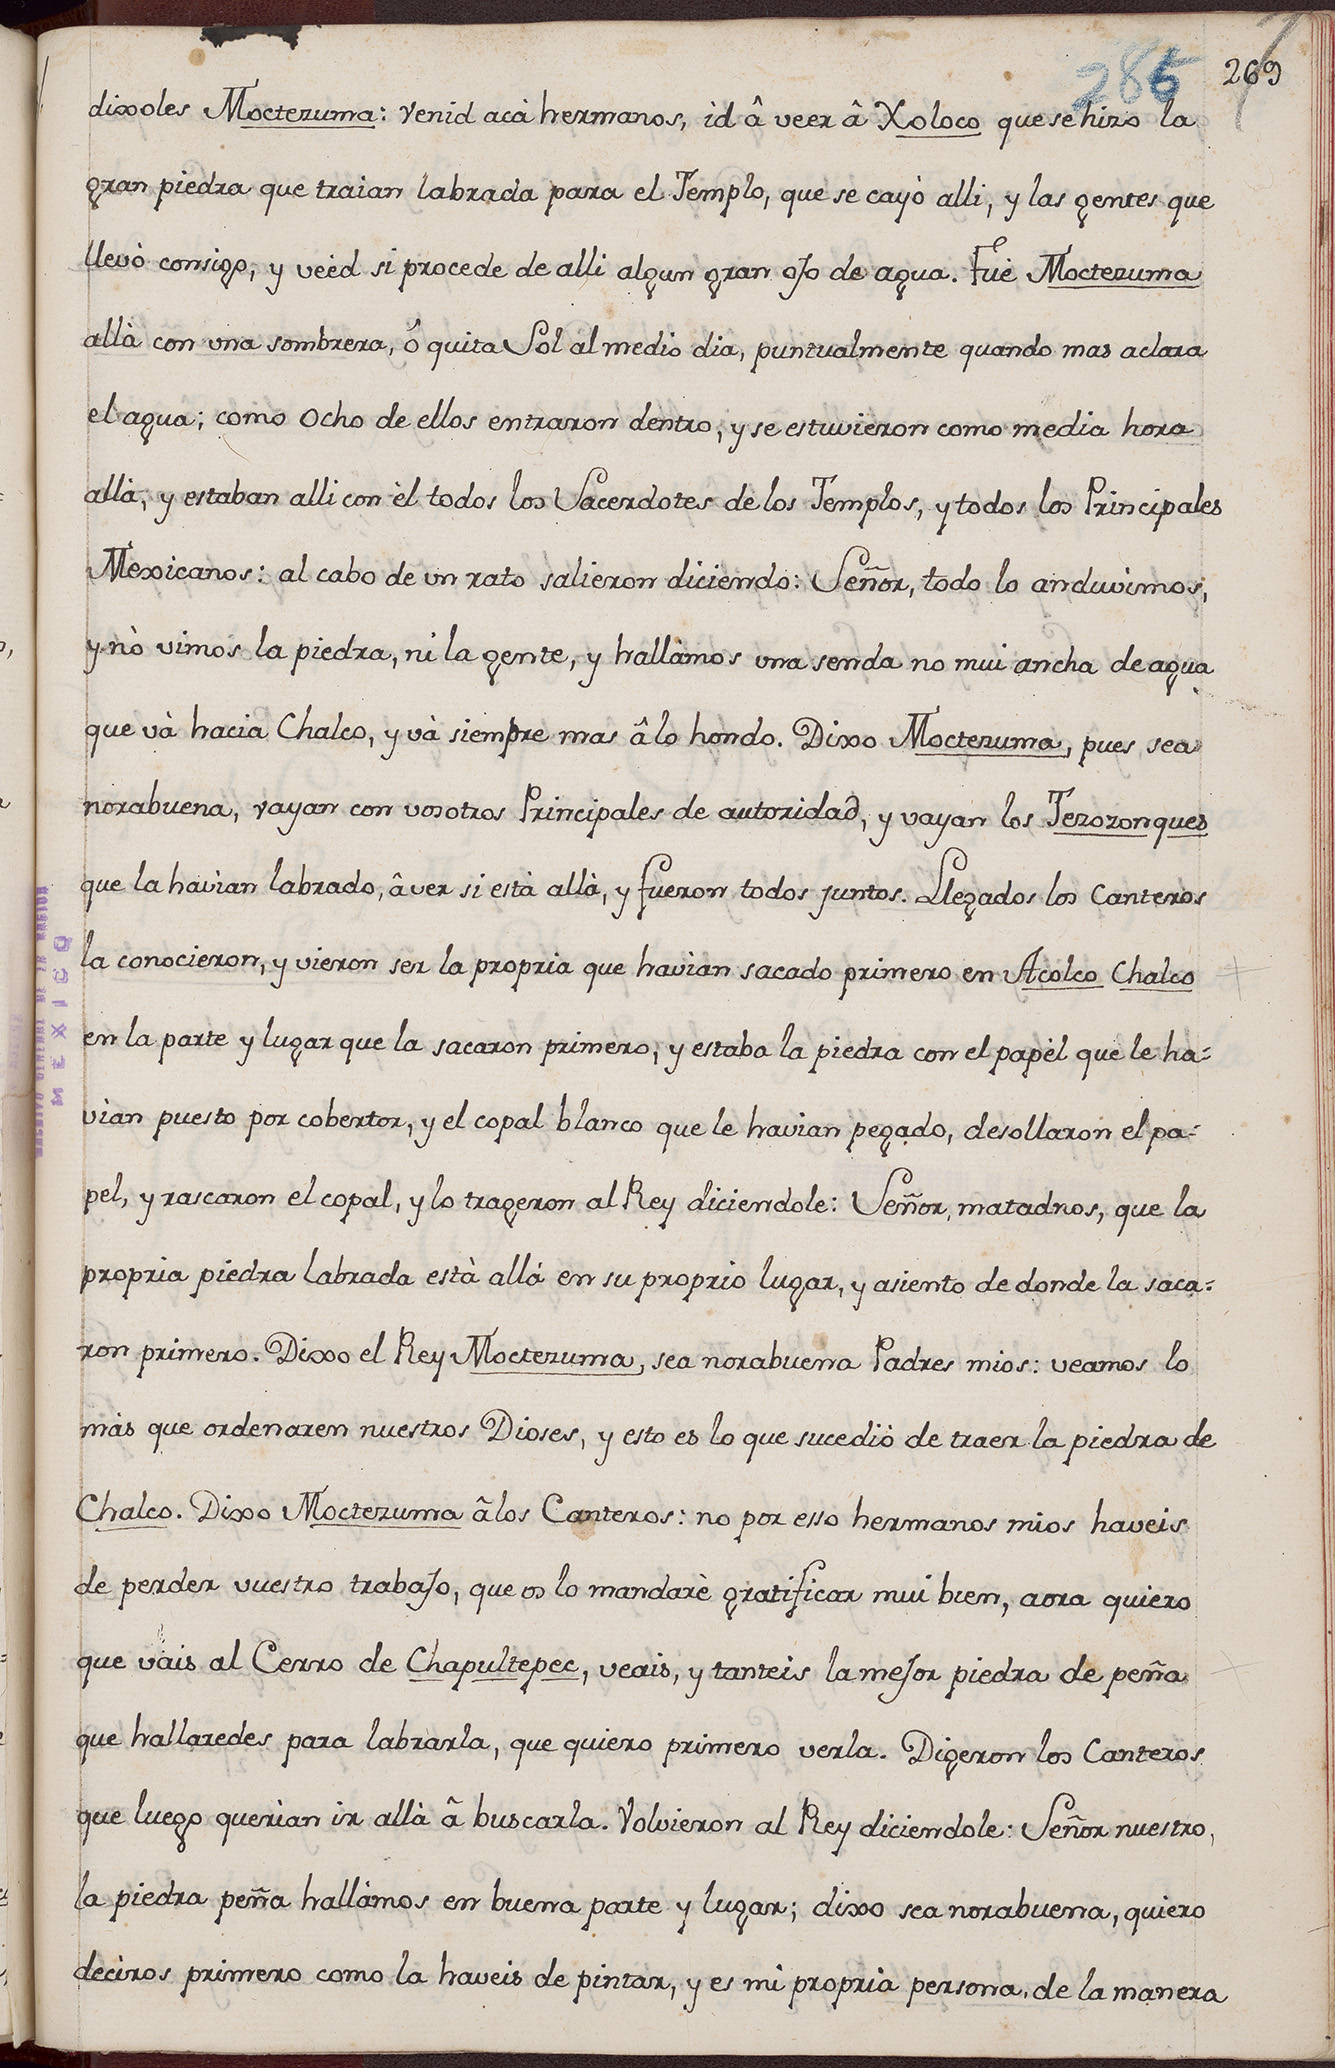 285 269
dixoles Moctezuma: venid acà hermanos, id â veer â Xoloco que se hizo la
gran piedra que traian labrada para el Templo, que se cayò alli, y las gentes que
llevò consigo, y veèd si procede de alli algun gran ojo de agua. Fuè Moctezuma
allà con una sombrera, ó quita Sol al medio dia, puntualmente quando mas aclara
el agua; como ocho de ellos entraron dentro, y se estuvieron como media hora
allà, y estaban alli con èl todos los Sacerdotes de los Templos, y todos los Principales
Mexicanos: al cabo de un rato salieron diciendo: Señor, todo lo anduvimos,
y nò vimos la piedra, ni la gente, y hallàmos una senda no mui ancha de agua
que và hacia Chalco, y và siempre mas â lo hondo. Dixo Moctezuma, pues sea
norabuena, vayan con vosotros Principales de autoridad, y vayan los Tezozonques
que la havian labrado, â ver si està allà, y fueron todos juntos. Llegados los Canteros
la conocieron, y vieron ser la propria que havian sacado primero en Acolco Chalco
en la parte y lugar que la sacaron primero, y estaba la piedra con el papèl que le ha=
vian puesto por cobertor, y el copal blanco que le havian pegado, desollaron el pa=
pel, y rascaron el copal, y lo trageron al Rey diciendole: Señor, matadnos, que la
propria piedra labrada està allá en su proprio lugar, y asiento de donde la saca=
ron primero. Dixo el Rey Moctezuma, sea norabuena Padres mios: veamos lo
màs que ordenaren nuestros Dioses, y esto es lo que sucediò de traer la piedra de
Chalco. Dixo Moctezuma â los Canteros: no por esso hermanos mios haveis
de perder vuestro trabajo, que os lo mandarè gratificar mui bien, aora quiero
que vais al Cerro de Chapultepec, veais, y tanteis la mejor piedra de peña
que hallaredes para labrarla, que quiero primero verla. Digeron los Canteros
que luego querian ir allà â buscarla. Volvieron al Rey diciendole: Señor nuestro,
la piedra peña hallàmos en buena parte y lugar; dixo sea norabuena, quiero
decìros primero como la haveis de pintar, y es mi propria persona, de la manera
MEXICO